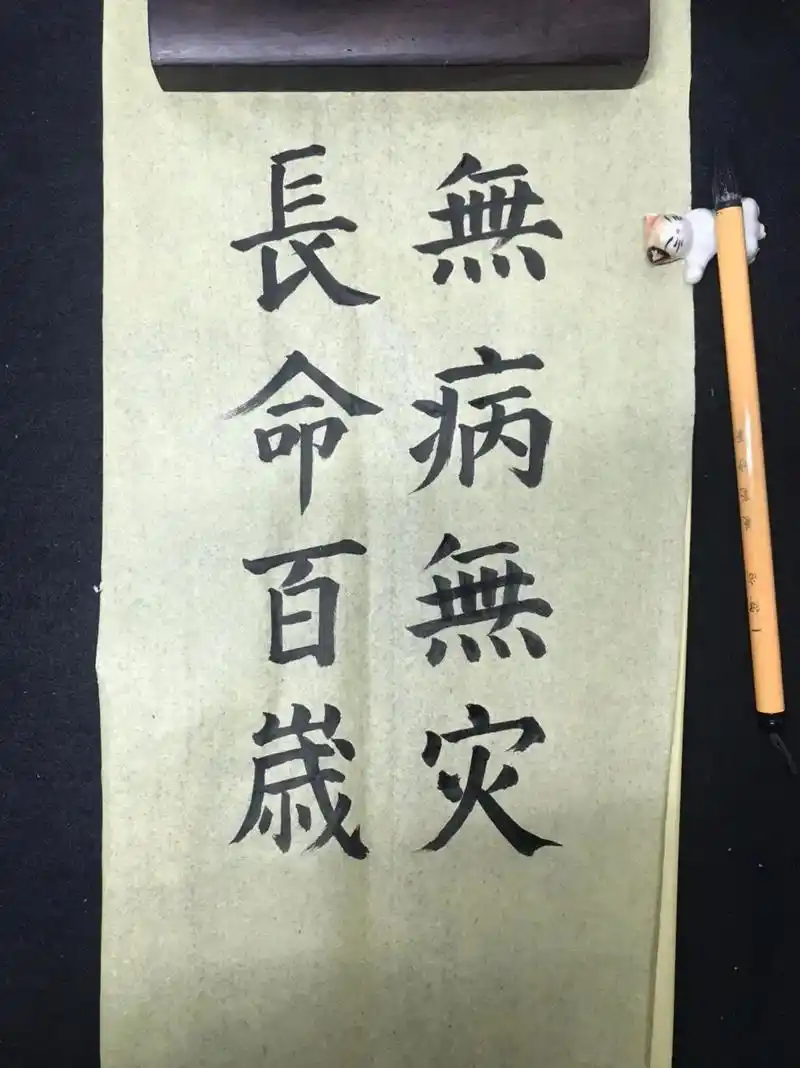 無病無灾
長命百歳